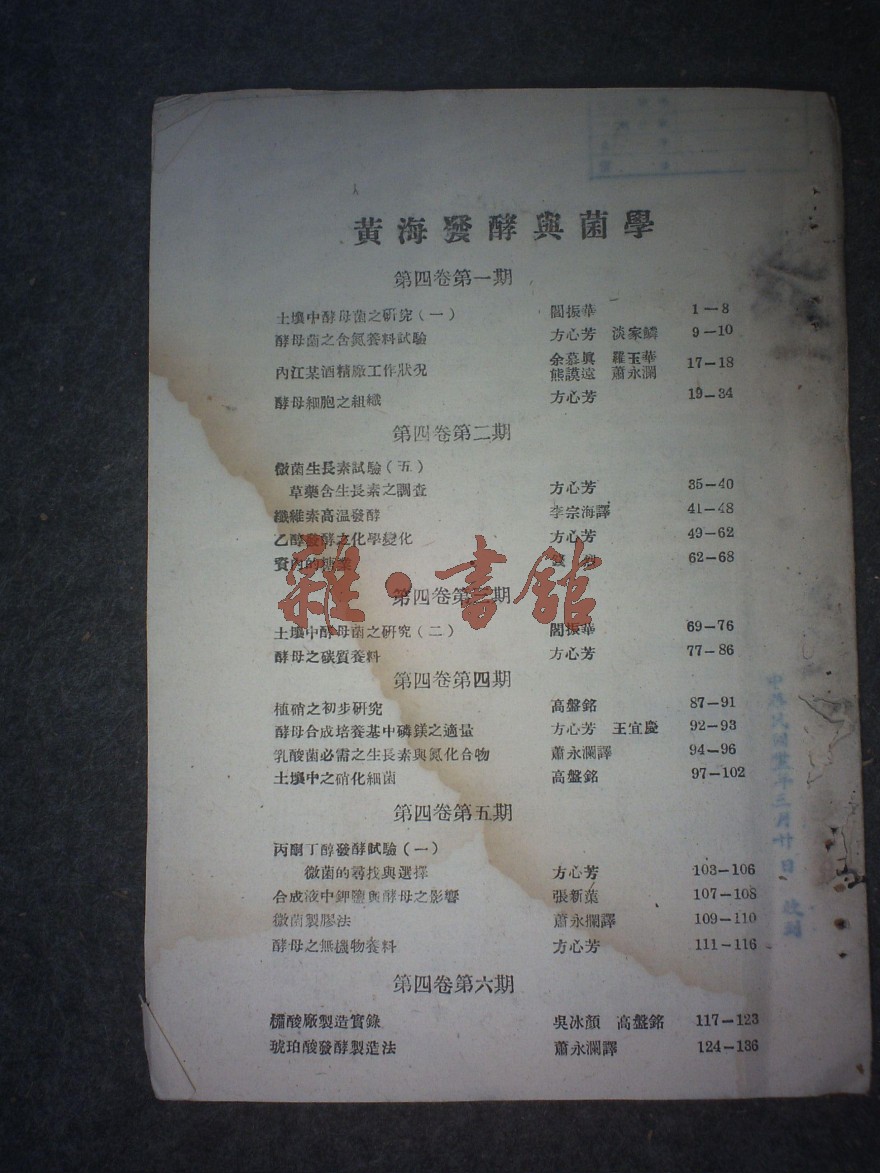 黃海發酵與菌學
第四卷第一期
土壤中酵母菌之研究(一) 閻振華 1—8
酵母菌之含氮養料試驗 方心芳 淡家麟 9—10
內江某酒精廠工作狀況 余慕眞 羅玉華 熊謨遠 蕭永瀾 17—18
酵母細胞之組織 方心芳 19—34
第四卷第二期
微菌生長素試驗(五)
草藥含生長素之調查 方心芳 35—40
纖維素高温發酵 李宗海譯 41—48
乙醇發酵之化學變化 方心芳 49—62
資內的糖業 62—68
第四卷第三期
土壤中酵母菌之研究(二) 閻振華 69—76
酵母之碳質養料 方心芳 77—86
第四卷第四期
植硝之初步研究 高盤銘 87—91
酵母合成培養基中磷鎂之適量 方心芳 王宜慶 92—93
乳酸菌必需之生長素與氮化合物 蕭永瀾譯 94—96
土壤中之硝化細菌 高盤銘 97—102
第四卷第五期
丙酮丁醇發酵試驗(一)
微菌的尋找與選擇 方心芳 103—106
合成液中鉀鹽與酵母之影響 張新葉 107—108
微菌製膠法 蕭永攔譯 109—110
酵母之無機物養料 方心芳 111—116
第四卷第六期
棓酸廠製造實錄 吳冰顏 高盤銘 117—123
琥珀酸發酵製造法 蕭永瀾譯 124—136
雜·書館
中華民國 年三月廿日 收到